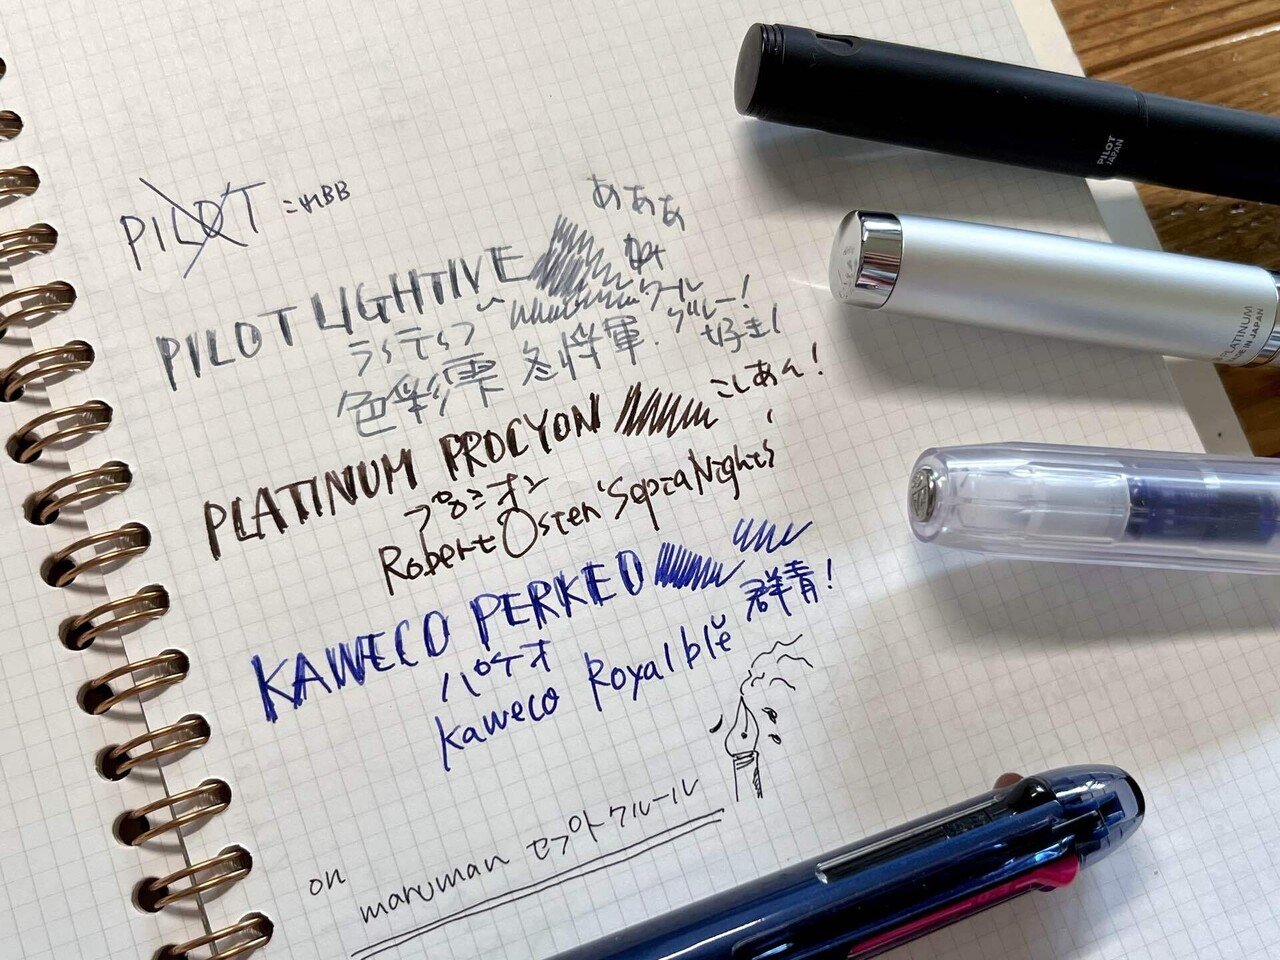 PILOT これBB
あああ
PILOT LIGHTIVE
ライティブ
クールグルー!
色彩雫 冬将軍.
好き!
PLATINUM PROCYON
こしあん!
プロシオン
Robert Oster 'Sepia Nights'
KAWECO PERKEO
群青!
パケオ
kaweco Royal ble
on maruman セプトクルール
PILOT
JAPAN
PLATINUM
MADE IN JAPAN